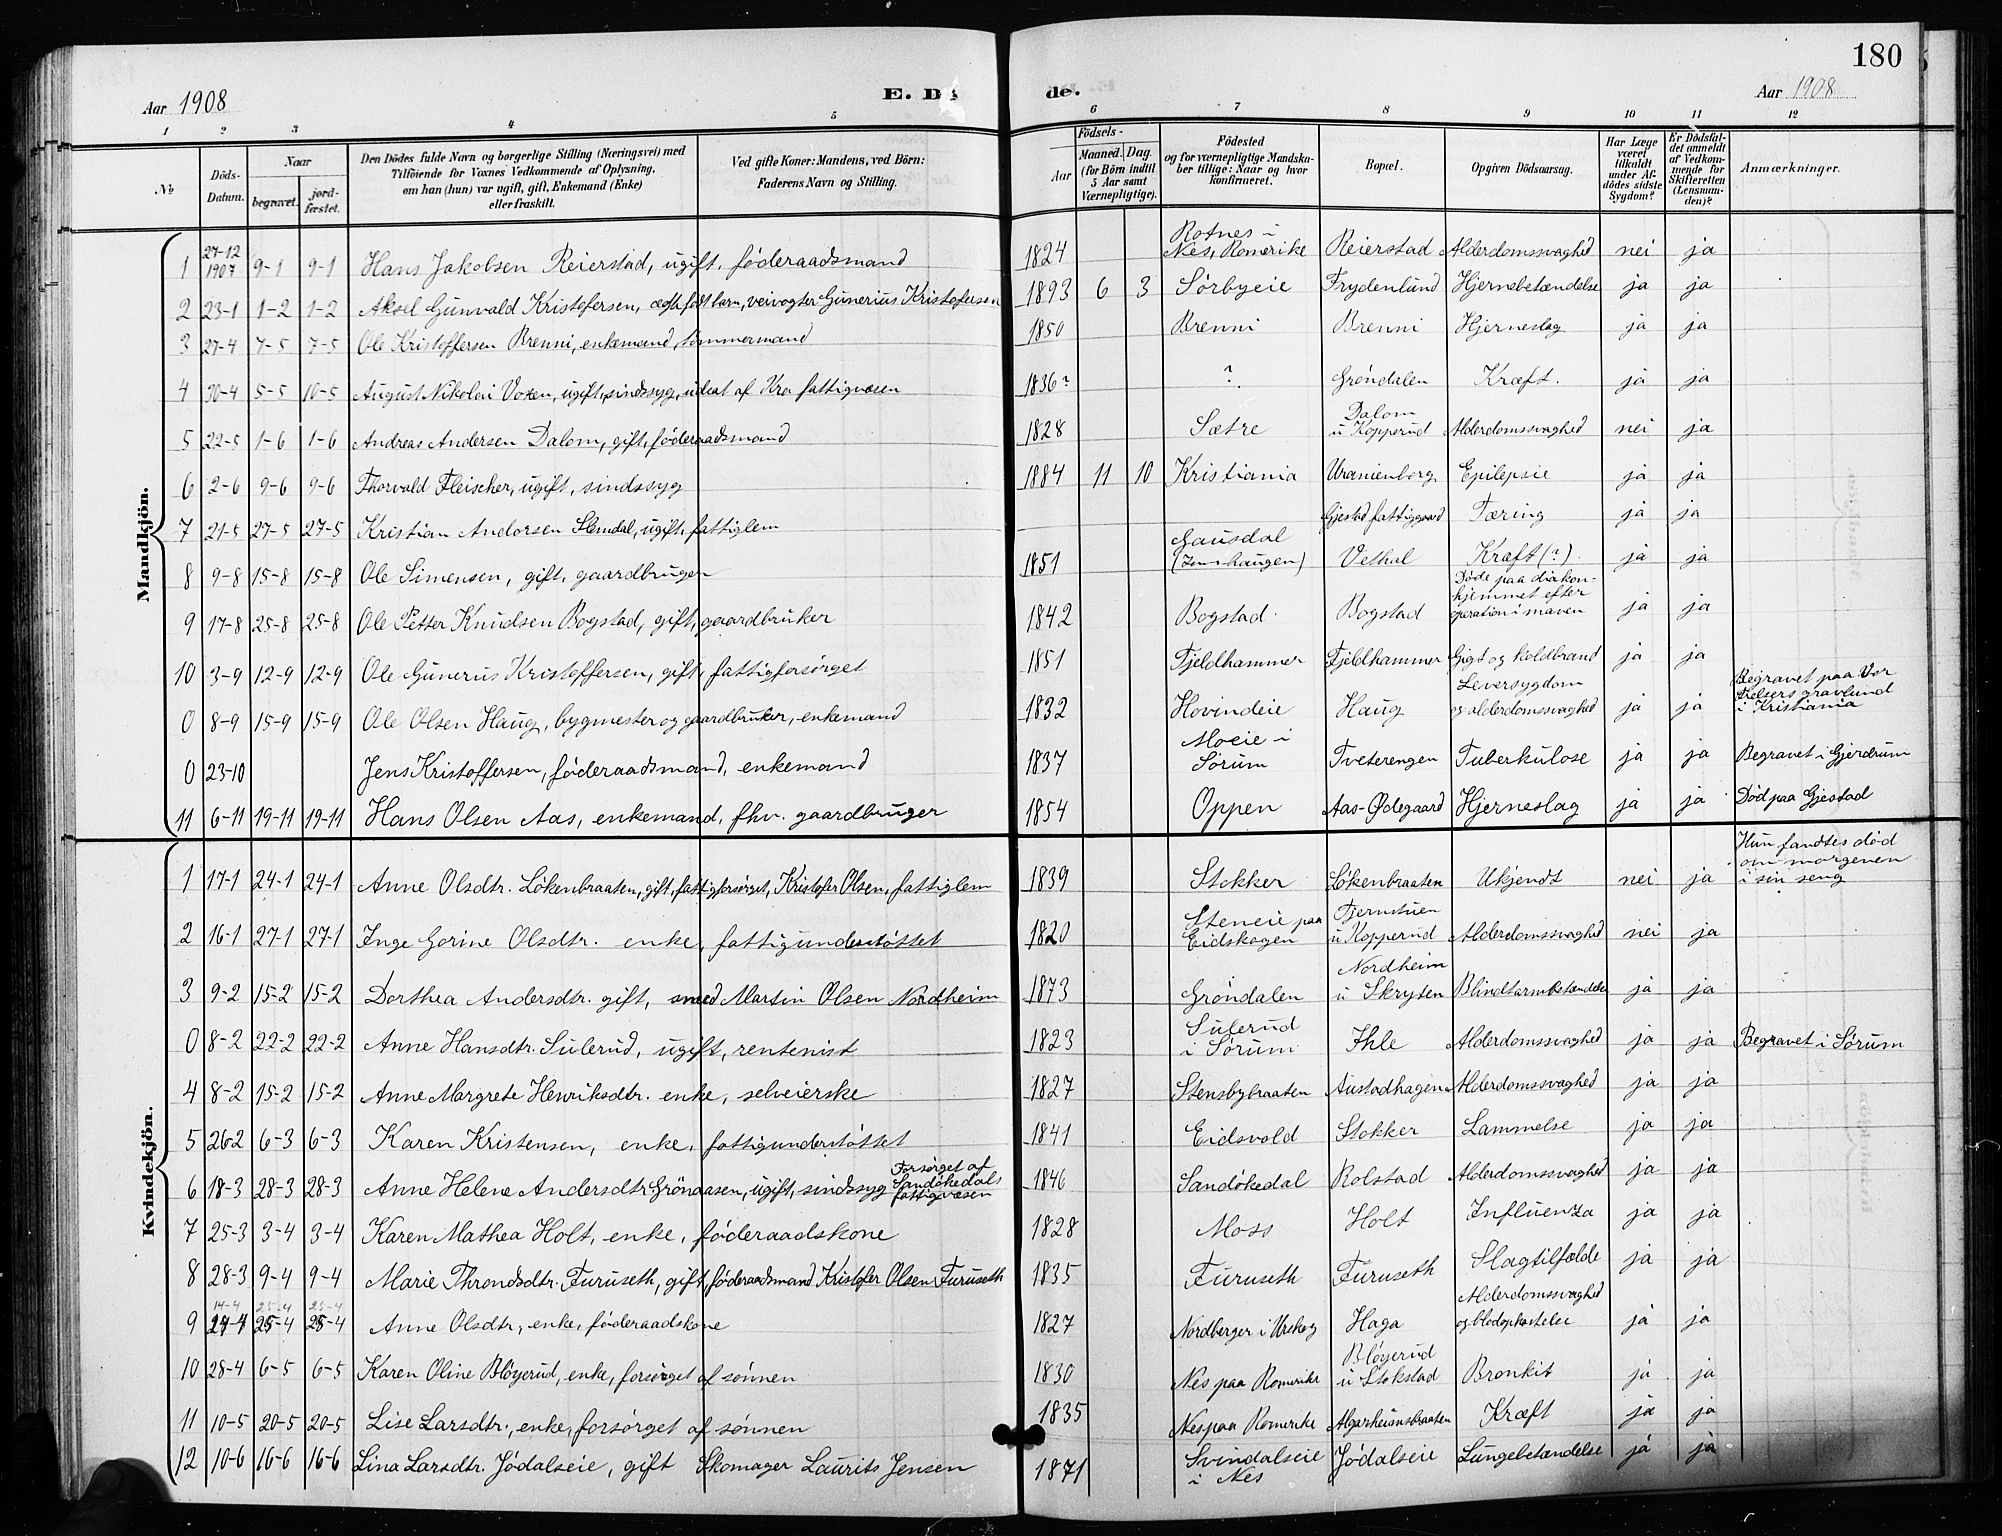 180
Aar 1908 E. Dø de. Aar 1908
1 2 3 4 5 6 7 8 9 10 11 12
No
Döds-Datum.
Naar
begravet. jordfæstet.
Den Dödes fulde Navn og borgerlige Stilling (Næringsvei) med
Tilföiende for Voxnes Vedkommende af Oplysning,
om han (hun) var ugift, gift, Enkemand (Enke)
eller fraskilt.
Ved gifte Koner: Mandens, ved Börn:
Faderens Navn og Stilling.
Födsels-
Aar
Maaned. Dag.
(for Börn indtil 5 Aar samt Værnepligtige).
Födested
og for værnepligtige Mandskaber tillige: Naar og hvor konfirmeret.
Bopæl.
Opgiven Dödsaarsag.
Har Læge været tilkaldt under Afdödes sidste Sygdom?
Er Dödsfaldet anmeldt af Vedkommende for Skifteretten (Lensmanden)?
Anmærkninger.
Mandkjön.
1 27-12 1907 9-1 9-1 Hans Jakobsen Reierstad, ugift, føderaadsmand 1824 Rotnes i Nes, Romerike Reierstad Alderdomssvaghed nei ja
2 23-1 1-2 1-2 Aksel Gunvald Kristofersen, ægtefødt barn, veivogter Gunerius Kristofersen 1893 6 3 Sørbyeie Frydenlund Hjernebetændelse ja ja
3 27-4 7-5 7-5 Ole Kristoffersen Brenni, enkemand, tømmermand 1850 Brenni Brenni Hjerneslag ja ja
4 30-4 5-5 10-5 August Nikolai Voxen, ugift, sindssyg, udsat af Kra fattigvæsen 1836? ? Grøndalen Kræft. ja ja
5 22-5 1-6 1-6 Andreas Andersen Dalom, gift, føderaadsmand 1828 Sætre Dalom u Kopperud Alderdomssvaghed nei ja
6 2-6 9-6 9-6 Thorvald Fleischer, ugift, sindssyg 1884 11 10 Kristiania Uranienborg Epilepsie ja ja
7 21-5 27-5 27-5 Kristian Andersen Slemdal, ugift, fattiglem Gjestad fattiggaard Tæring ja ja
8 9-8 15-8 15-8 Ole Simensen, gift, gaardbruger 1851 Gausdal Vethal Kræft (?). ja ja
9 17-8 25-8 25-8 Ole Petter Knudsen Bogstad, gift, gaardbruker 1842 Bogstad Bogstad Døde paa diakonhjemmet efter operation i maven ja ja
10 3-9 12-9 12-9 Ole Gunerus Kristoffersen, gift, fattigforsørget 1851 Fjeldhammer Fjeldhammer Gigt og koldbrand ja ja
0 8-9 15-9 15-9 Ole Olsen Haug, bygmester og gaardbruker, enkemand 1832 Hovindeie Haug Leversygdom og alderdomssvaghed ja ja Begravet paa Vor Frelsers gravlund i Kristiania
0 23-10 Jens Kristoffersen, føderaadsmand, enkemand 1837 Moeie i Sørum Tveterengen Tuberkulose ja ja Begravet i Gjerdrum
11 6-11 19-11 19-11 Hans Olsen Aas, enkemand, fhv. gaardbruger 1854 Oppen Aas-Ødegaard Hjerneslag ja ja Død paa Gjestad
Kvindekjön.
1 17-1 24-1 24-1 Anne Olsdtr. Løkenbraaten, gift, fattigforsørget, Kristofer Olsen, fattiglem 1839 Stokker Løkenbraaten Ukjendt nei ja Hun fandtes død om morgenen i sin seng
2 16-1 27-1 27-1 Inge Gorine Olsdtr. enke, fattigunderstøttet 1820 Steneie paa Eidskogen Tjernstuen u Kopperud Alderdomssvaghed nei ja
3 9-2 15-2 15-2 Dorthea Andersdtr. gift, smed Martin Olsen Nordheim 1873 Grøndalen Nordheim u Skryten Blindtarmbetændelse ja ja
0 8-2 22-2 22-2 Anne Hansdtr. Sulerud, ugift, rentenist 1823 Sulerud i Sørum Ihle Alderdomssvaghed ja ja Begravet i Sørum
4 8-2 15-2 15-2 Anne Margrete Henriksdtr. enke, selveierske 1827 Stensbybraaten Austadhagen Alderdomssvaghed ja ja
5 26-2 6-3 6-3 Karen Kristensen, enke, fattigunderstøttet 1841 Eidsvold Stokker Lammelse ja ja
6 18-3 28-3 28-3 Anne Helene Andersdtr Grönaasen, ugift, sindssyg Forsørget af Sandøkedals fattigvæsen 1846 Sandøkedal Rolstad Alderdomssvaghed ja ja
7 25-3 3-4 3-4 Karen Mathea Holt, enke, føderaadskone 1828 Moss Holt Influenza ja ja
8 28-3 9-4 9-4 Marie Throndsdtr. Furuseth, gift, føderaadsmand Kristofer Olsen Furuseth 1835 Furuseth Furuseth Slagtilfælde ja ja
14-4 25-4 25-4
9 24-4 25-4 25-4 Anne Olsdtr, enke, føderaadskone 1827 Nordberger i Urskog Haga Alderdomssvaghed og blodopkastelse ja ja
10 28-4 6-5 6-5 Karen Oline Bløyerud, enke, forsørget af sønnen 1830 Nes paa Romerike Bløyerud u Stokstad Bronkit ja ja
11 10-5 20-5 20-5 Lise Larsdtr., enke, forsørget af sønnen 1835 Nes paa Romerike Algarheimsbraaten Kræft ja ja
12 10-6 16-6 16-6 Lina Larsdtr. Jødalseie, gift Skomager Laurits Jensen 1871 Svindalseie i Nes Jødalseie Lungebetændelse ja ja